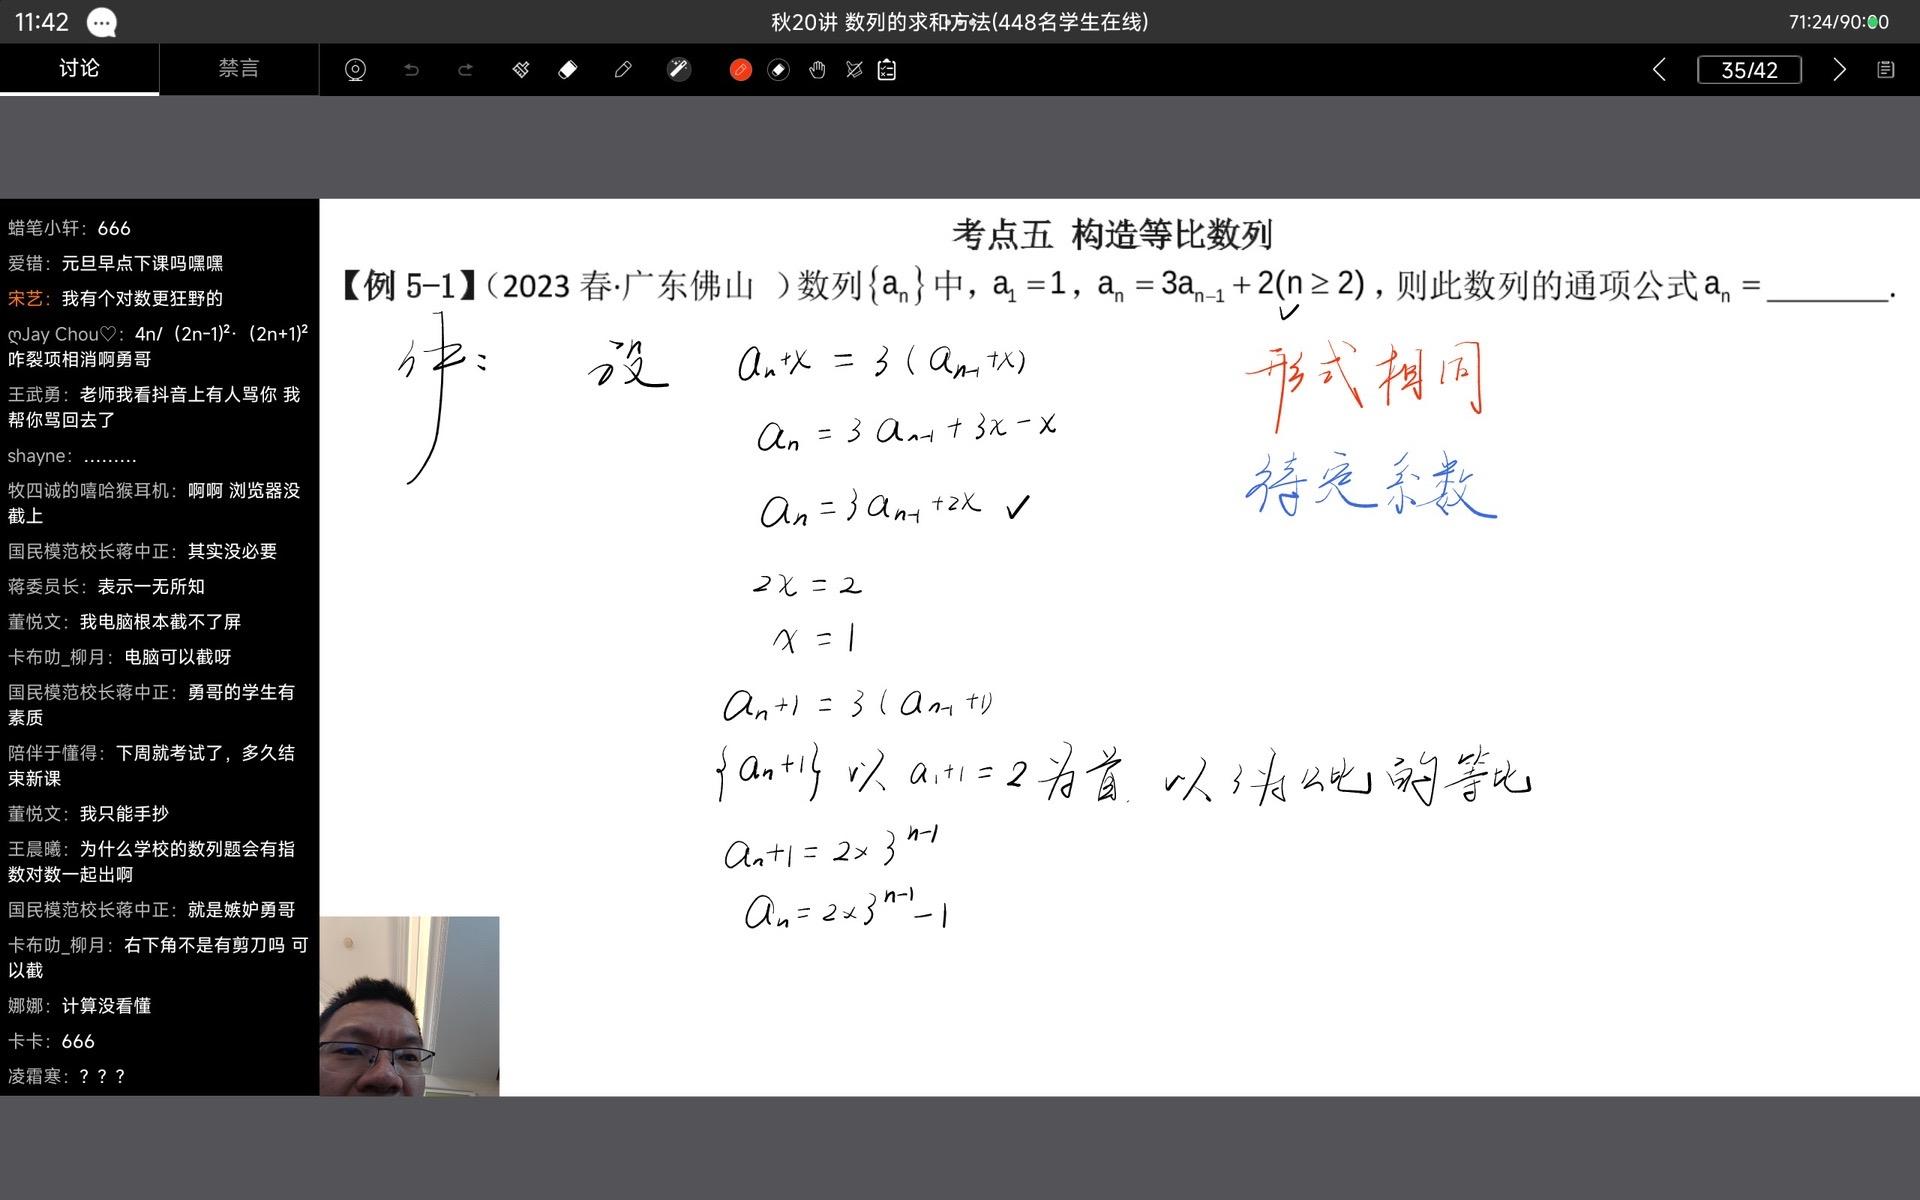 11:42
秋20讲 数列的求和方法(448名学生在线)
71:24/90:00
讨论
禁言
35/42
蜡笔小轩：666
爱错：元旦早点下课吗嘿嘿
宋艺：我有个对数更狂野的
ღJay Chou♡：4n/（2n-1)²·（2n+1)²
咋裂项相消啊勇哥
王武勇：老师我看抖音上有人骂你 我
帮你骂回去了
shayne：………
牧四诚的嘻哈猴耳机：啊啊 浏览器没
截上
国民模范校长蒋中正：其实没必要
蒋委员长：表示一无所知
董悦文：我电脑根本截不了屏
卡布叻_柳月：电脑可以截呀
国民模范校长蒋中正：勇哥的学生有
素质
陪伴于懂得：下周就考试了，多久结
束新课
董悦文：我只能手抄
王晨曦：为什么学校的数列题会有指
数对数一起出啊
国民模范校长蒋中正：就是嫉妒勇哥
卡布叻_柳月：右下角不是有剪刀吗 可
以截
娜娜：计算没看懂
卡卡：666
凌霜寒：？？？
考点五 构造等比数列
【例 5-1】（2023 春·广东佛山 ）数列{aₙ}中，a₁=1，aₙ=3aₙ₋₁+2(n≥2)，则此数列的通项公式aₙ=_______.
解： 设 aₙ+x = 3(aₙ₋₁+x)
形式相同
aₙ = 3aₙ₋₁+3x-x
待定系数
aₙ=3aₙ₋₁+2x ✓
2x = 2
x = 1
aₙ+1 = 3(aₙ₋₁+1)
{aₙ+1} 以 a₁+1=2为首. 以3为公比的等比
aₙ+1 = 2×3ⁿ⁻¹
aₙ = 2×3ⁿ⁻¹-1